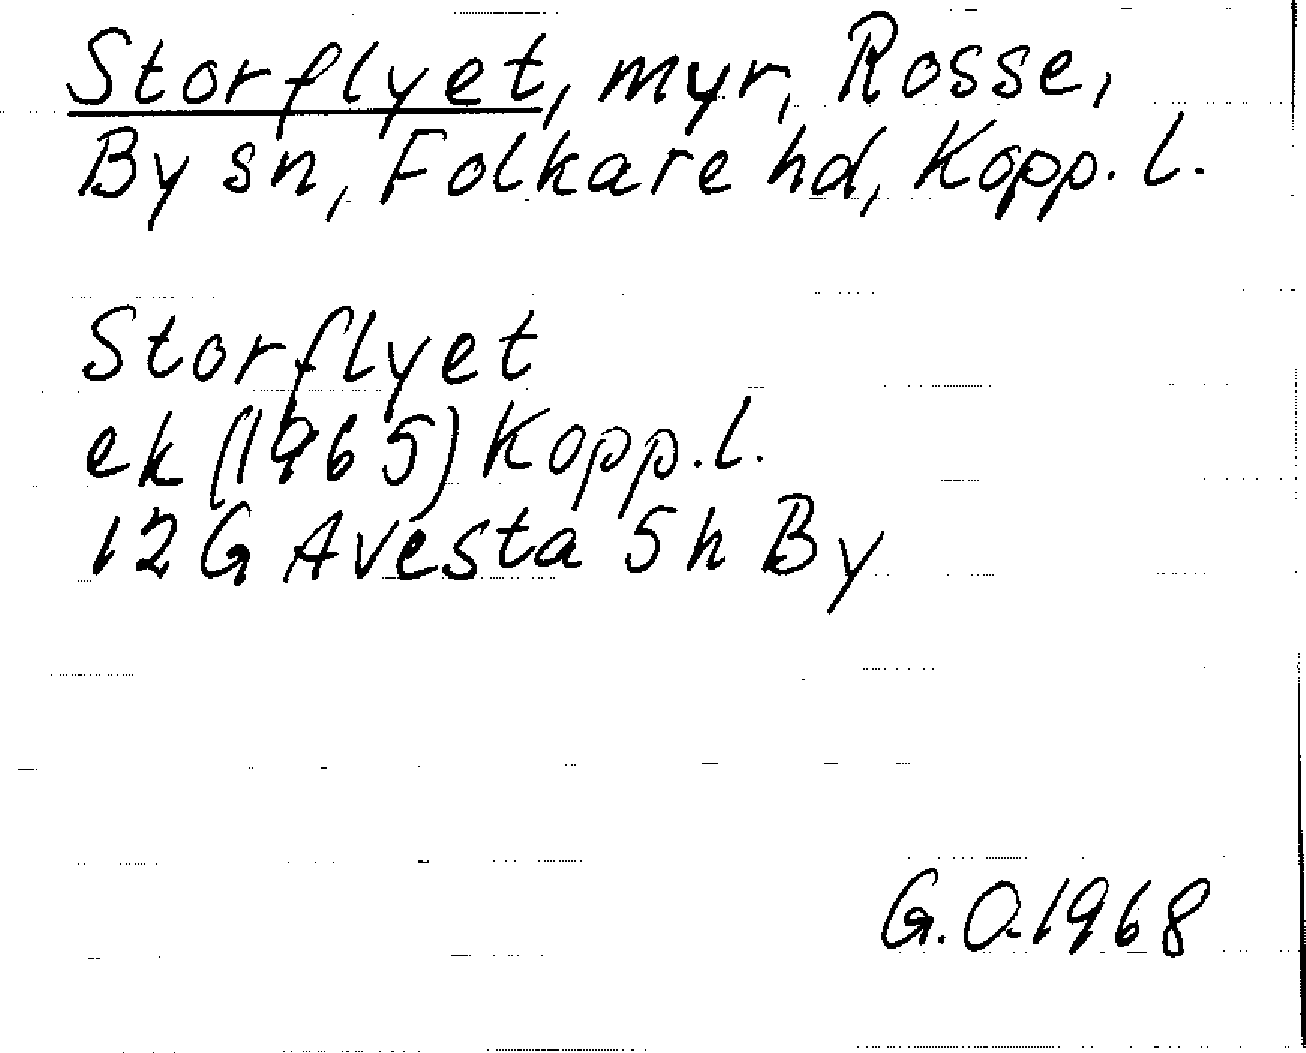 Storflyet, myr, Rosse,
By sn, Folkare hd, Kopp. l.
Storflyet
ek (1965) Kopp. l.
12 G Avesta 5h By
G.O. 1968